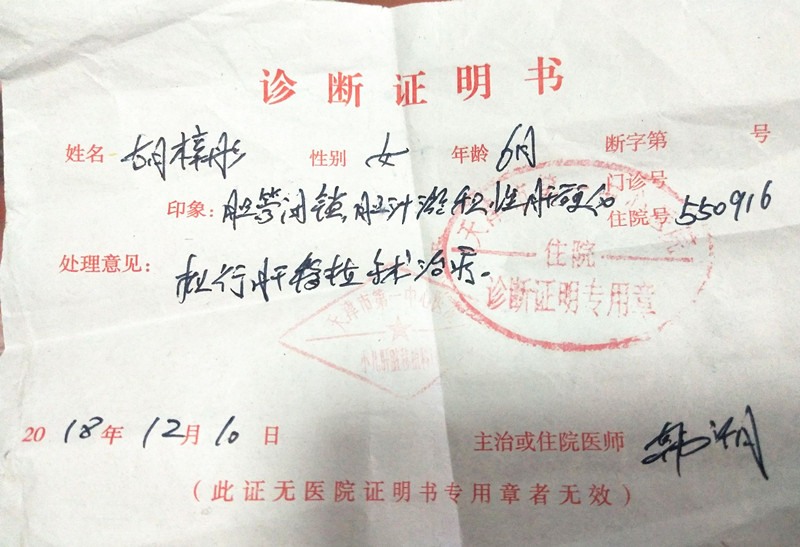 诊断证明书
姓名 胡梓彤 性别 女 年龄 6月 断字第 号
门诊号
印象: 胆管闭锁,胆汁淤积性肝硬化 住院号 550916
处理意见: 拟行肝移植手术治疗。
天津市第一中心医院
住院
诊断证明专用章
天津市第一中心医院
2018年12月10日 主治或住院医师
(此证无医院证明书专用章者无效)